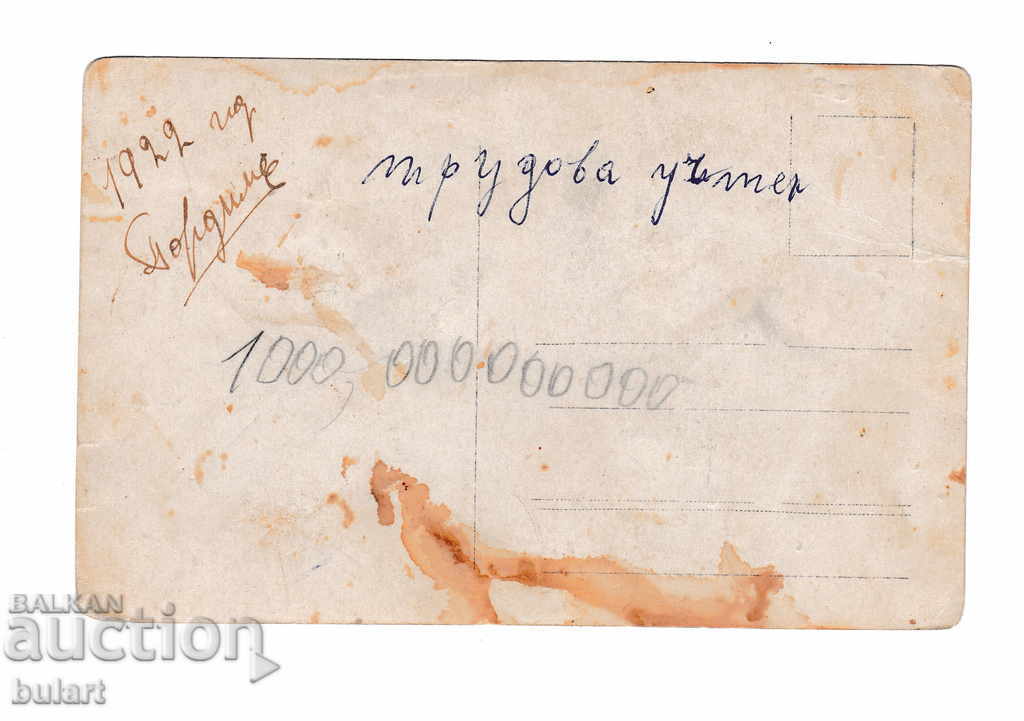 1922 год
Гордиме
трудова
1000,000000000
BALKAN
auction
bulart